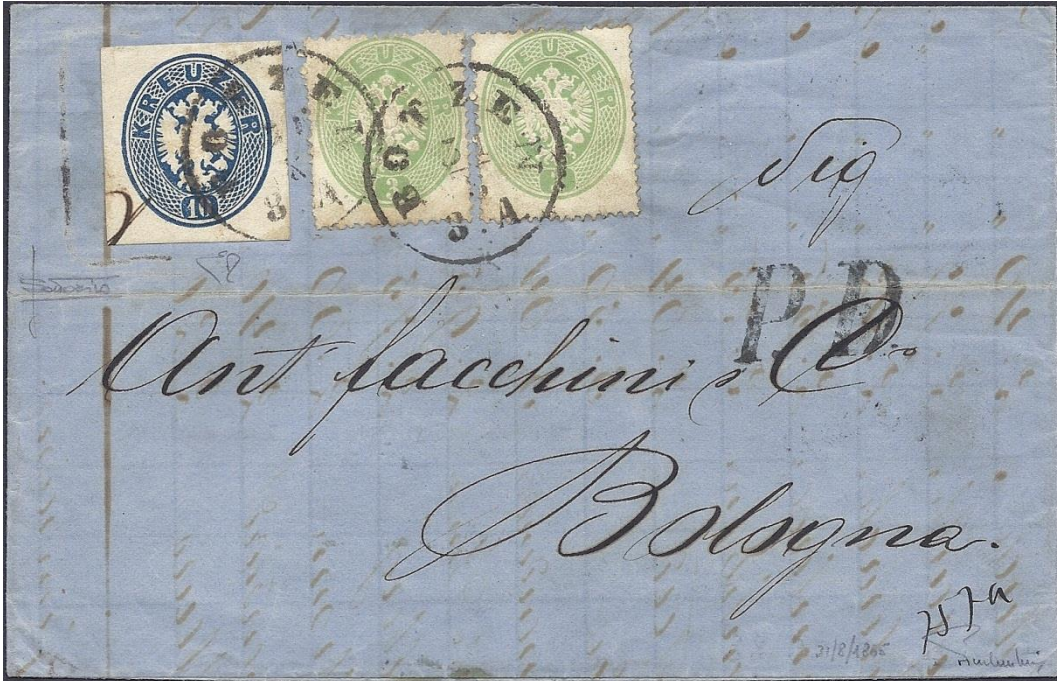 KREUZER 10
KREUZER 3
KREUZER 3
BOZEN
BOZEN
Sig
P.D.
Ant Facchini & Co
Bologna.
31/8/1865